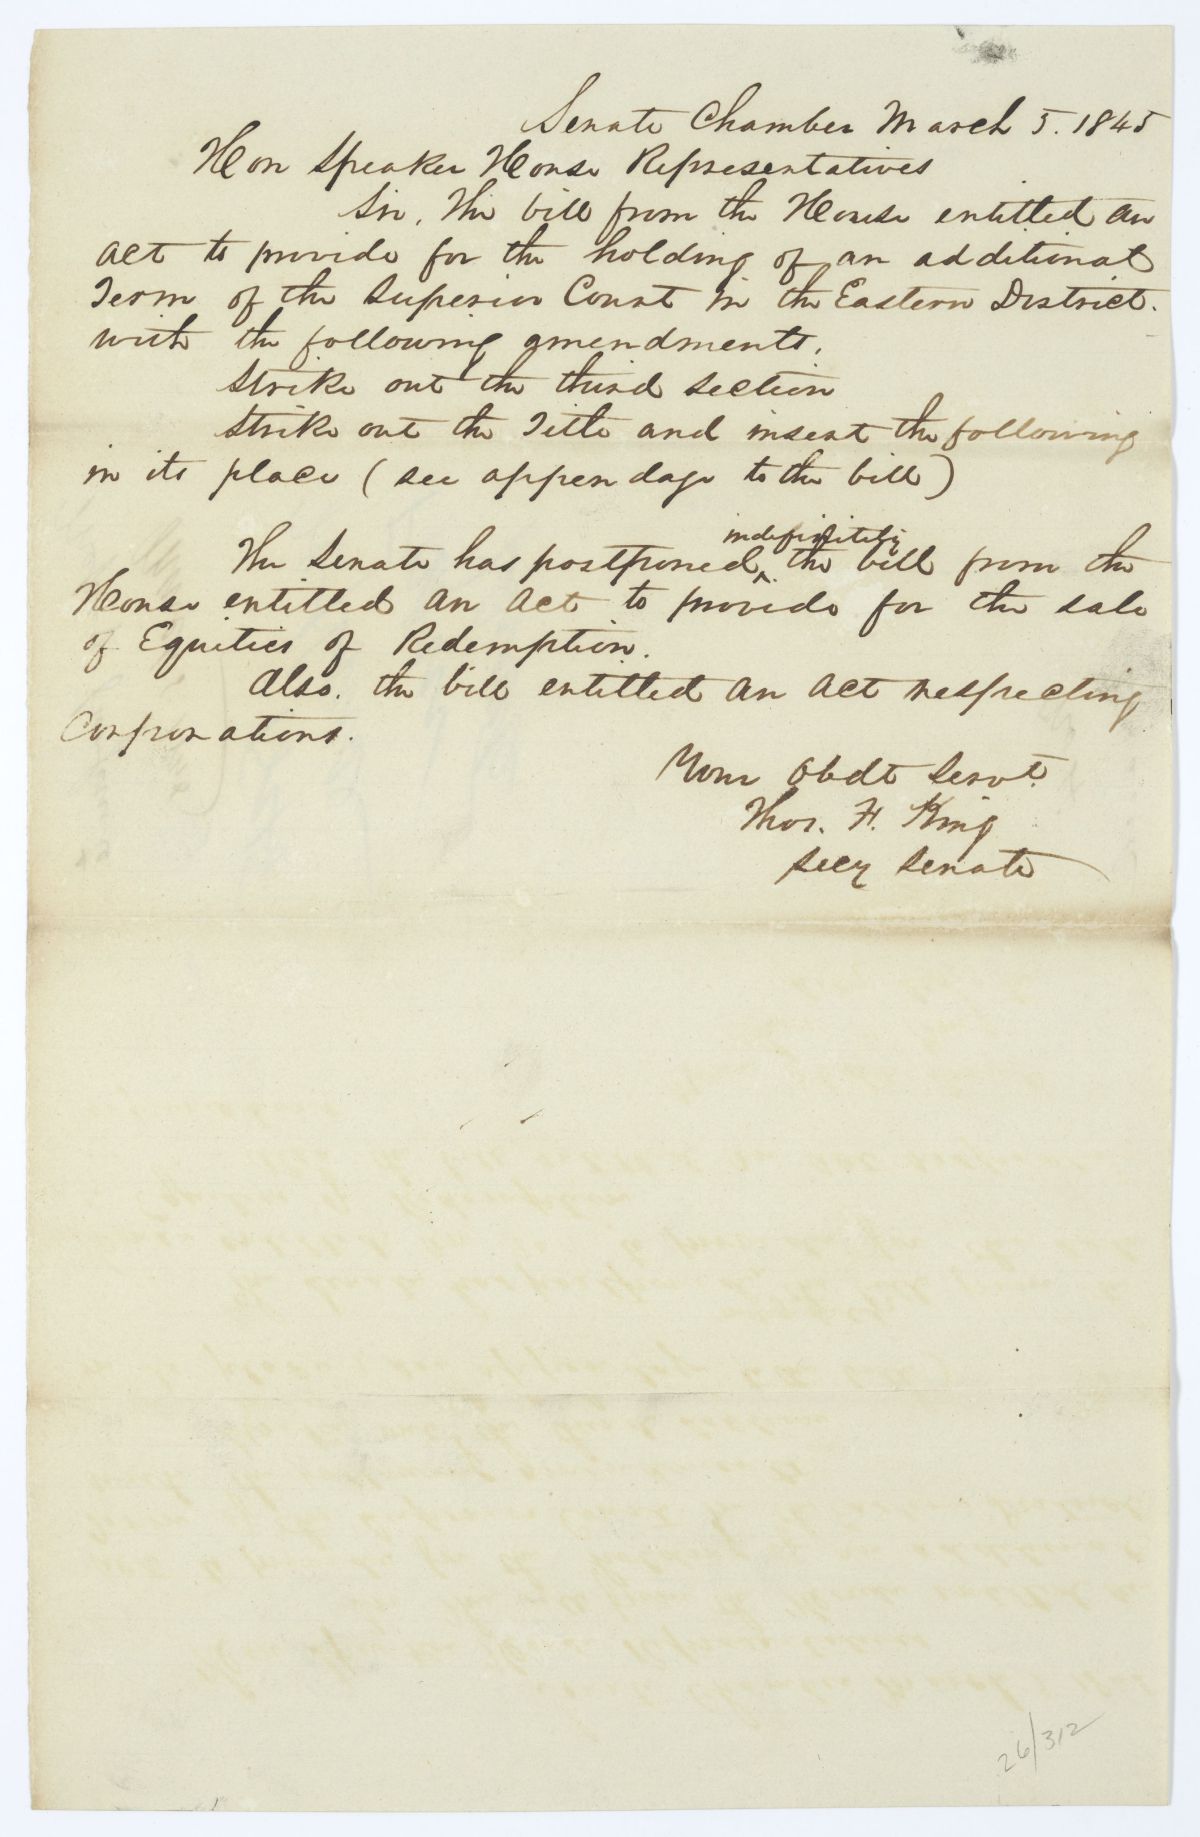 Senate Chamber March 5. 1845
Hon Speaker House Representatives
Sir, The bill from the House entitled an
act to provide for the holding of an additional
Term of the Superior Court in the Eastern District.
with the following amendments.
Strike out the third section
Strike out the Title and insert the following
in its place (see appendage to the bill)
The Senate has postponed indefinitely the bill from the
House entitled an act to provide for the sale
of Equities of Redemption.
Also. the bill entitled an act respecting
Corporations.
Your Obdt Servt.
Thos. H. King
Secy Senate
26/312